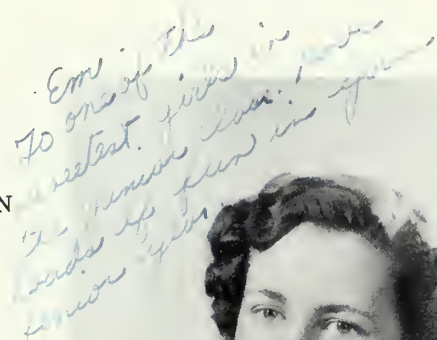 Em -
To one of the
sweetest girls in
the junior class,
loads of fun in your
senior year
N